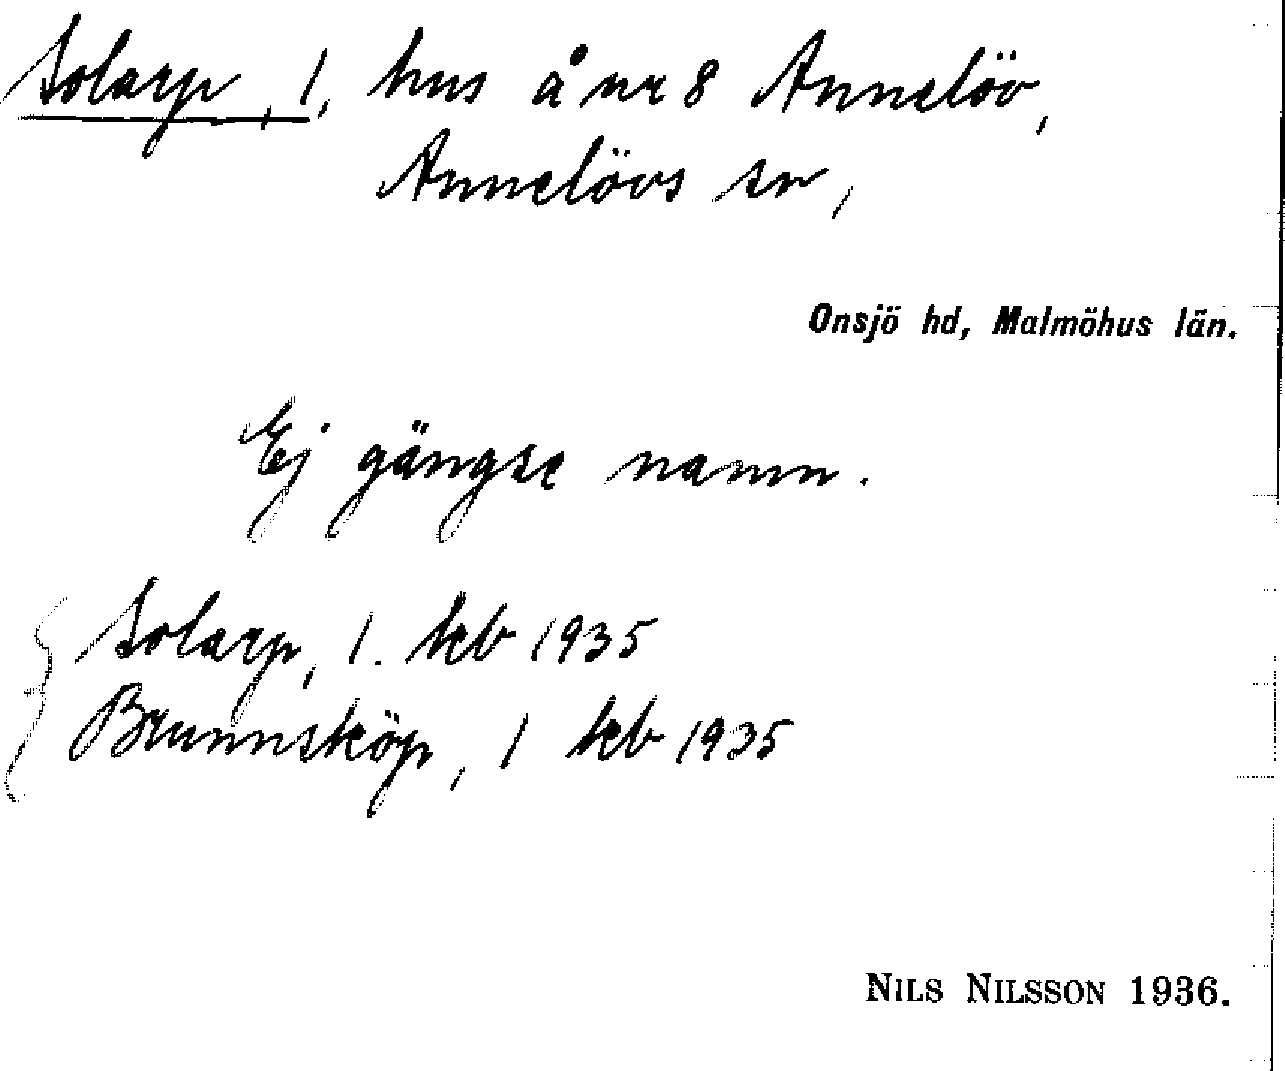 Solarp, 1, hus å nr 8 Annelöv,
Annelövs sn,
Onsjö hd, Malmöhus län.
Ej gängse namn.
Solarp, 1. kb 1935
Brunnsköp, 1 kb 1935
NILS NILSSON 1936.